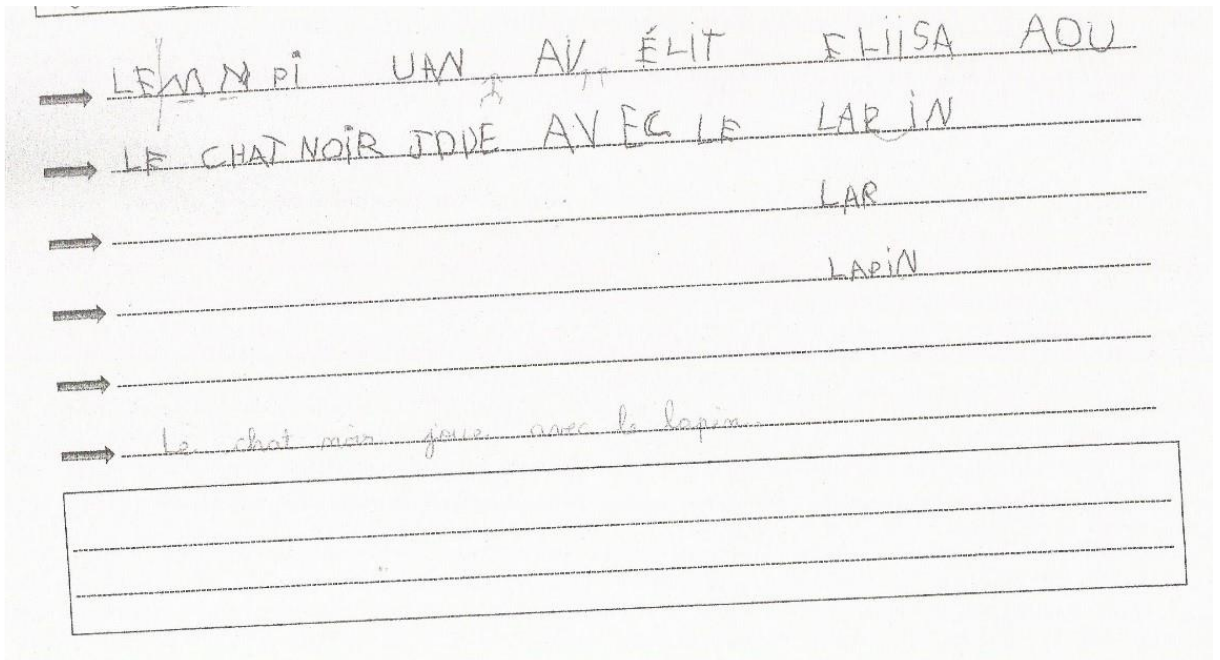 LEMNPi UAN AV ÉLiT ELIISA AOU
LE CHAT NOiR JOUE AVEC LE LARiN
LAR
LAPiN
Le chat noir joue avec le lapin.